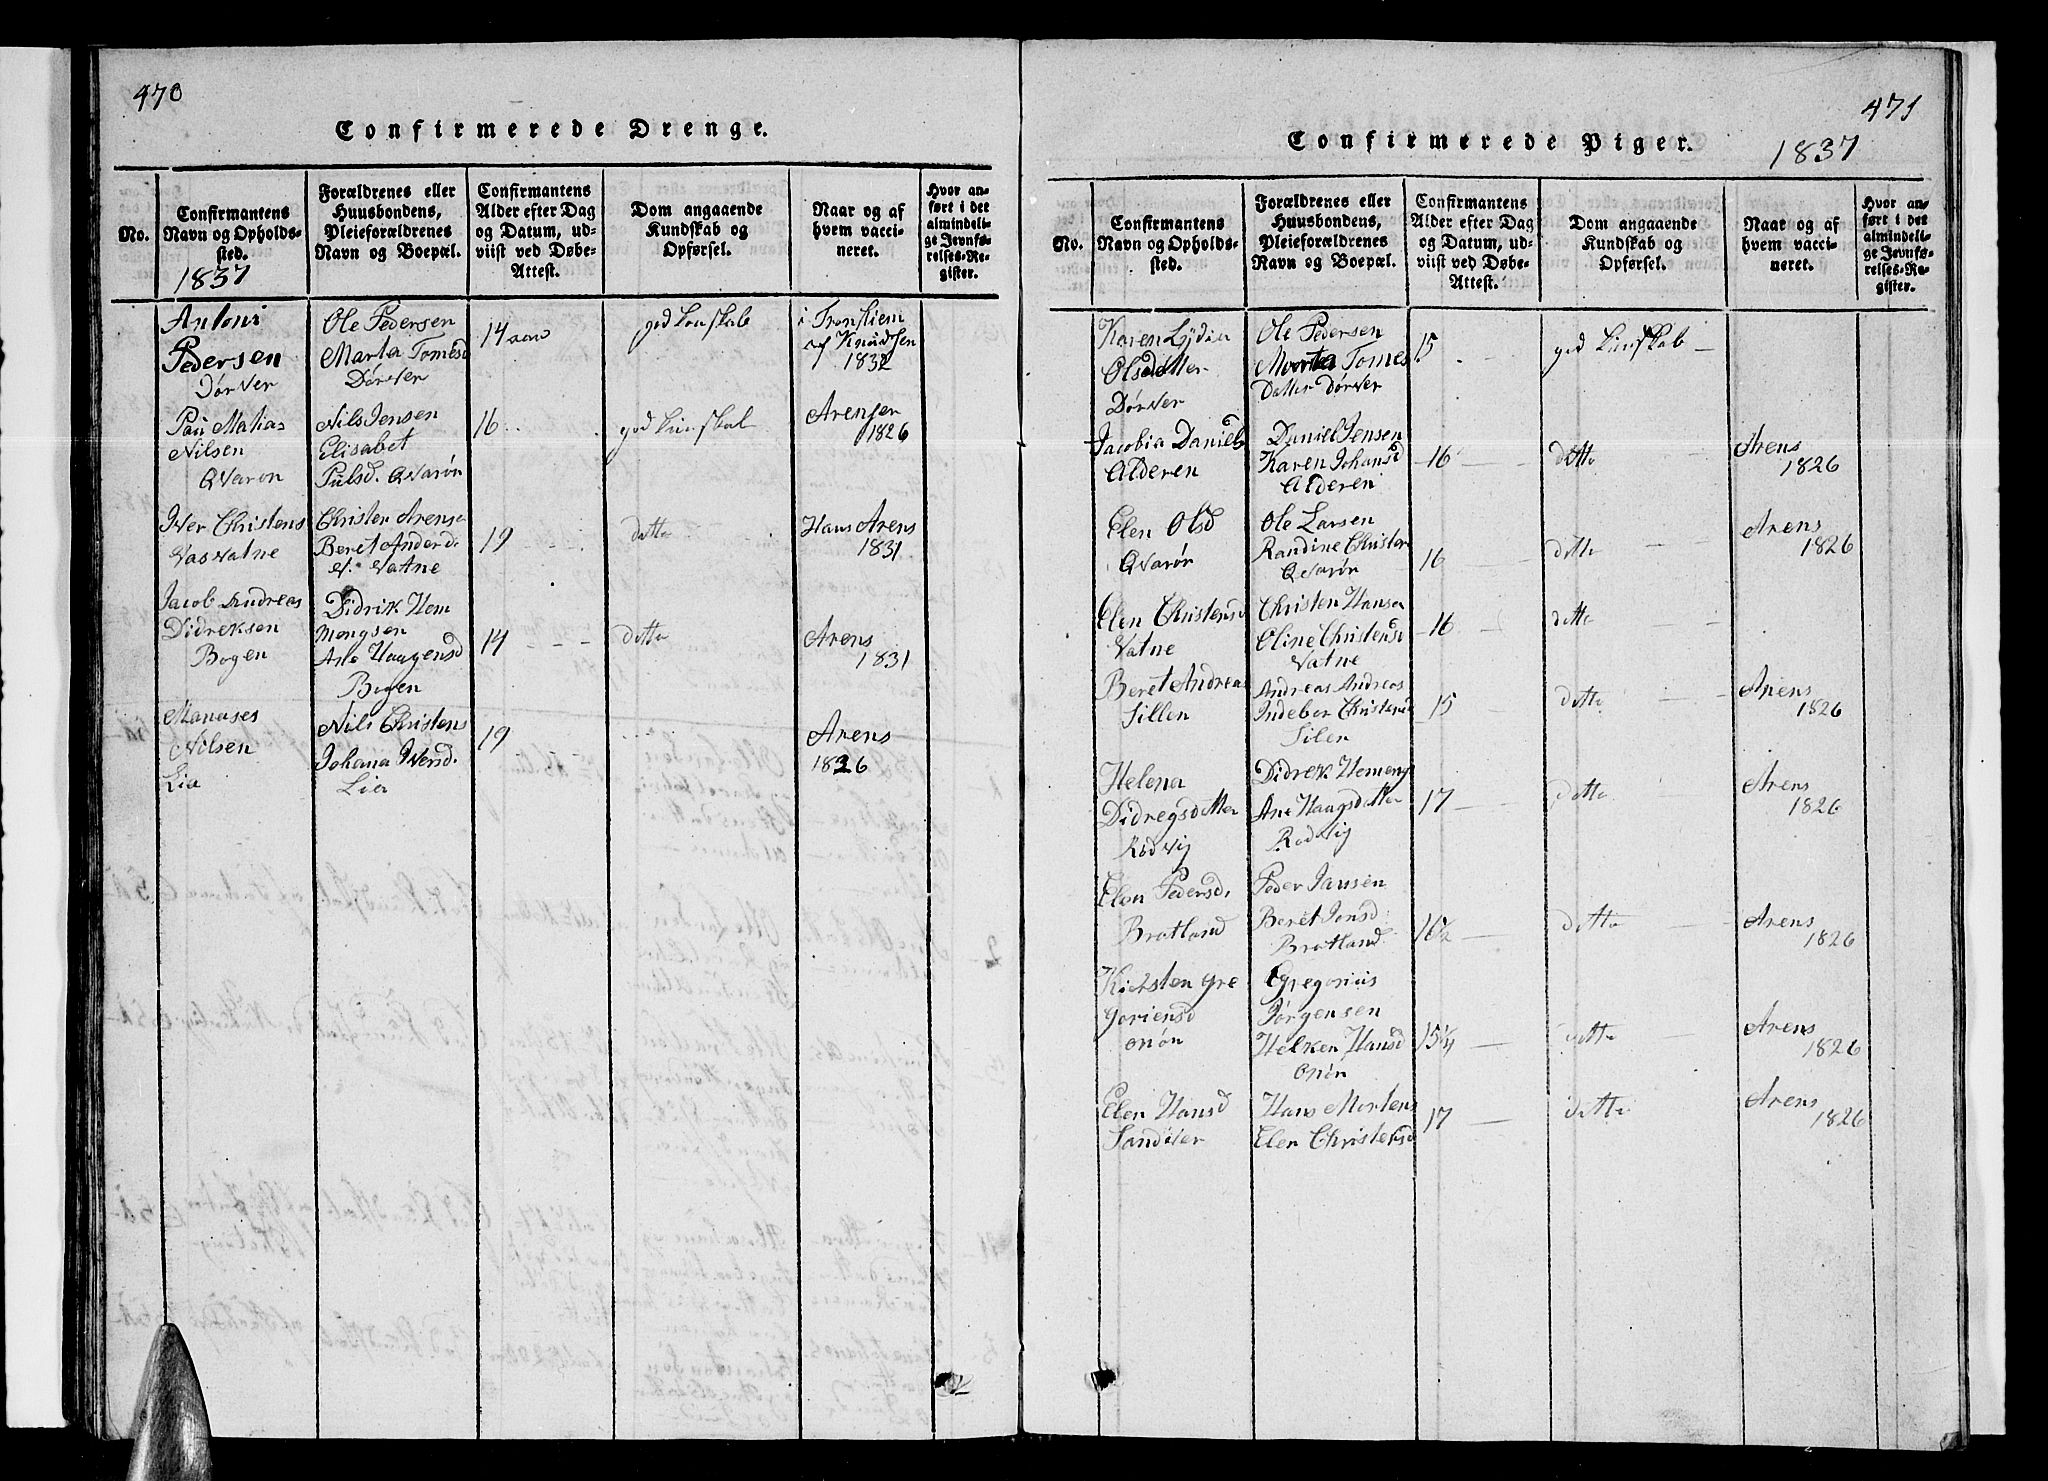 470
Confirmerede Drenge.
No.
Confirmantens
Navn og Opholds-
sted.
1837
Forældrenes eller
Huusbondens,
Pleieforældrenes
Navn og Boepæl.
Confirmantens
Alder efter Dag
og Datum, ud-
viist ved Døbe-
Attest.
Dom angaaende
Kundskab og
Opførsel.
Naar og af
hvem vacci-
neret.
Hvor an-
ført i det
almindeli-
ge Jevnfø-
relses-Re-
gister.
Antoni
Pedersen
Dørver
Ole Pedersen
Marta Tomesd
Dørver
14 aar
god konskab
i Tronhiem
af Knudsen
1832
Paul Matias
Nilsen
Qvarøn
Nils Jensen
Elisabet
Pulsd. Qvarøn
16
god kunskab
Arensen
1826
Iver Christens
Vasvatne
Christen Arensen
Beret Anders d.
V. Vatne
19
detto
Hans Arens
1831
Jacob Andreas
Didreksen
Bogen
Didrik Hem
mengsen
Ane Haagensd
Bogen
14
detto
Arens
1831
Manases
Nilsen
Lia
Nils Christens
Johana Iversd.
Lia
19
Arens
1826
471
Confirmerede Piger.
1837
No.
Confirmantens
Navn og Opholds-
sted.
Forældrenes eller
Huusbondens,
Pleieforældrenes
Navn og Boepæl.
Confirmantens
Alder efter Dag
og Datum, ud-
viist ved Døbe-
Attest.
Dom angaaende
Kundskab og
Opførsel.
Naar og af
hvem vacci-
neret.
Hvor an-
ført i det
almindeli-
ge Jevnfø-
relses-Re-
gister.
Karen Lydia
Olsdatter
Dørver
Ole Pedersen
Marta Tomes
Datter Dørver
15
god kunskab
Jacobia Daniels
Alderen
Daniel Jensen
Karen Johansd
Alderen
16
detto
Arens
1826
Elen Olsd
Qvarøn
Ole Larsen
Randine Christen
Qvarøn
16
detto
Arens
1826
Elen Christensd
Vatne
Christen Hansen
Oline Christensd
Vatne
16
detto
Beret Andreas
Sillen
Andreas Andreas
Indebor Christensd
Silen
15
detto
Arens
1826
Helena
Didregsdatter
Rødvig
Didrek Hemengs
Ane Haagsdatter
Rodvig
17
detto
Arens
1826
Elen Pedersd.
Bratland
Peder Jansen
Beret Jonsd
Bratland
16½
detto
Arens
1826
Kirsten Gre
goriensd
onøn
Gregorius
Jørgensen
Helken Hansd
Onøn
15¼
detto
Arens
1826
Elen Hansd
Hans Mortens
Elen Christensd
17
detto
Arens
1826